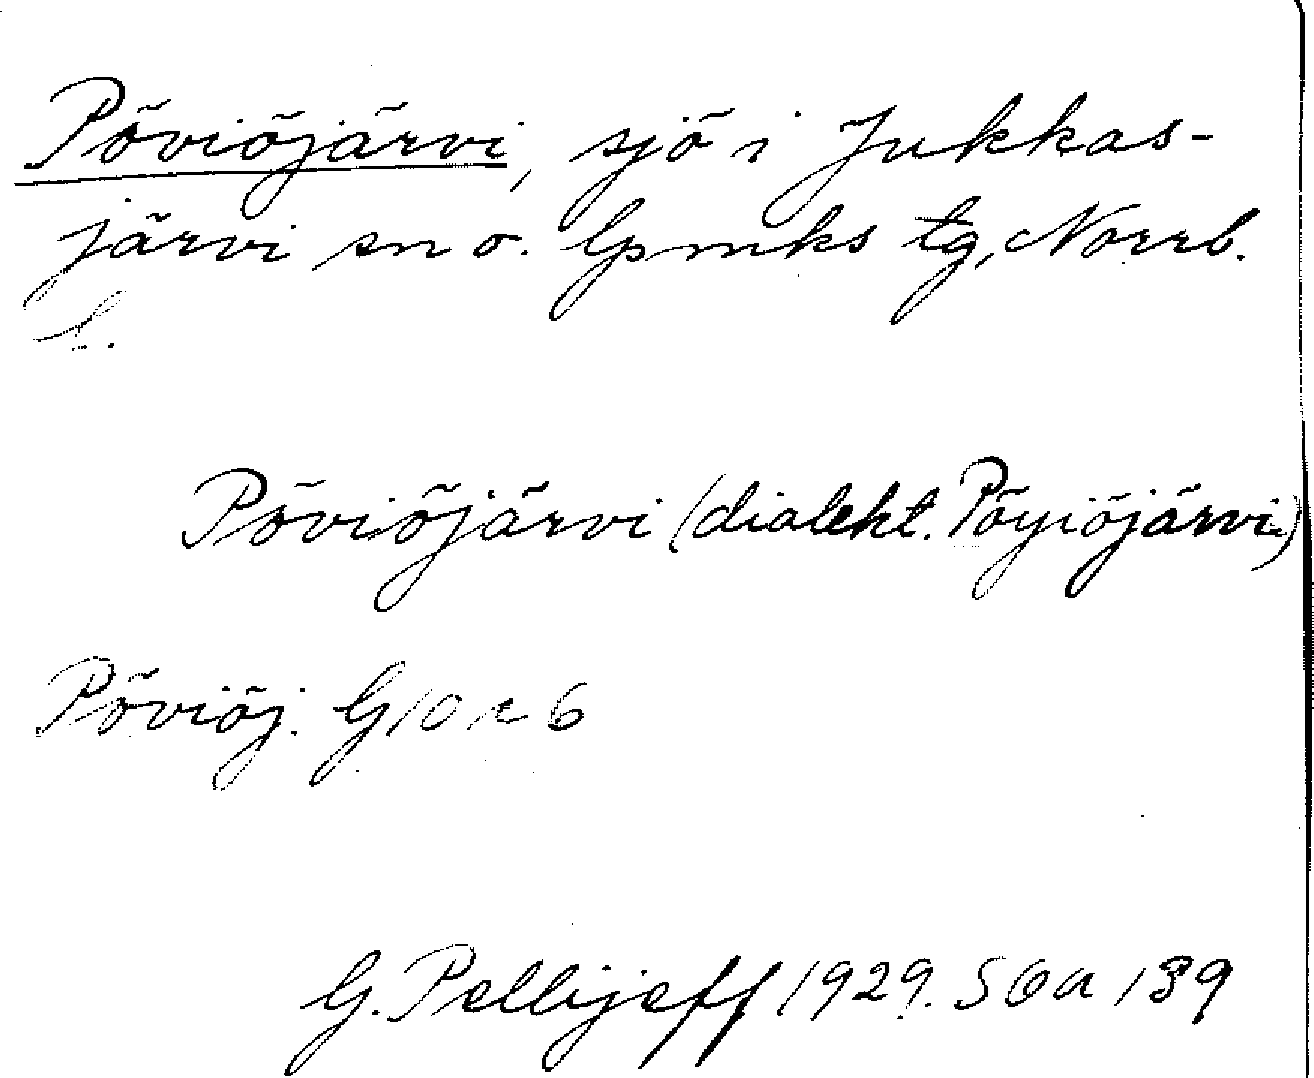 Pöviöjärvi, sjö i Jukkas-
järvi sn o. lpmks tg, Norrb.
l.
Pöviöjärvi (dialekt. Pöyiöjärvi)
Pöviöj. G 10 r 6
G. Pellijeff 1929. SOA 139